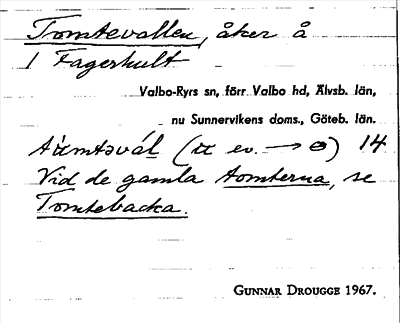 Tomtevallen, åker å
1 Fagerhult
Valbo-Ryrs sn, förr Valbo hd, Älvsb. län,
nu Sunnervikens doms., Göteb. län.
(tt ev. → ɵ) 14
Vid de gamla tomterna, se
Tomtebacka.
GUNNAR DROUGGE 1967.